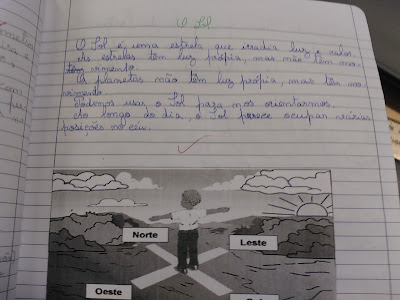 O Sol
O Sol é uma estrela que irradia luz e calor.
As estrelas têm luz própria, mas não têm mo-
vimento.
Os planetas não têm luz própria, mas têm mo-
vimento.
Podemos usar o Sol para nos orientarmos.
Ao longo do dia, o Sol parece ocupar várias
posições no céu.
Norte
Leste
Oeste